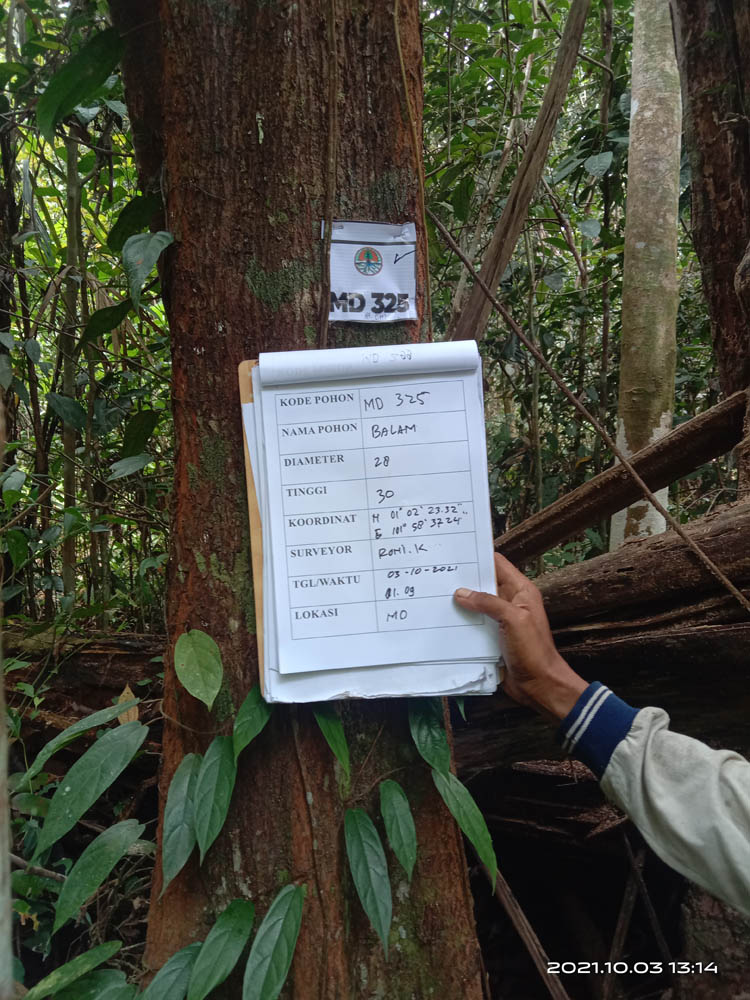 MD 325
KODE POHON MD 325
NAMA POHON BALAM
DIAMETER 28
TINGGI 30
KOORDINAT N 01° 02' 23.32"
E 101° 58' 37.24"
SURVEYOR ROMI.K
TGL/WAKTU 03-10-2021
01.09
LOKASI MD
2021.10.03 13:14